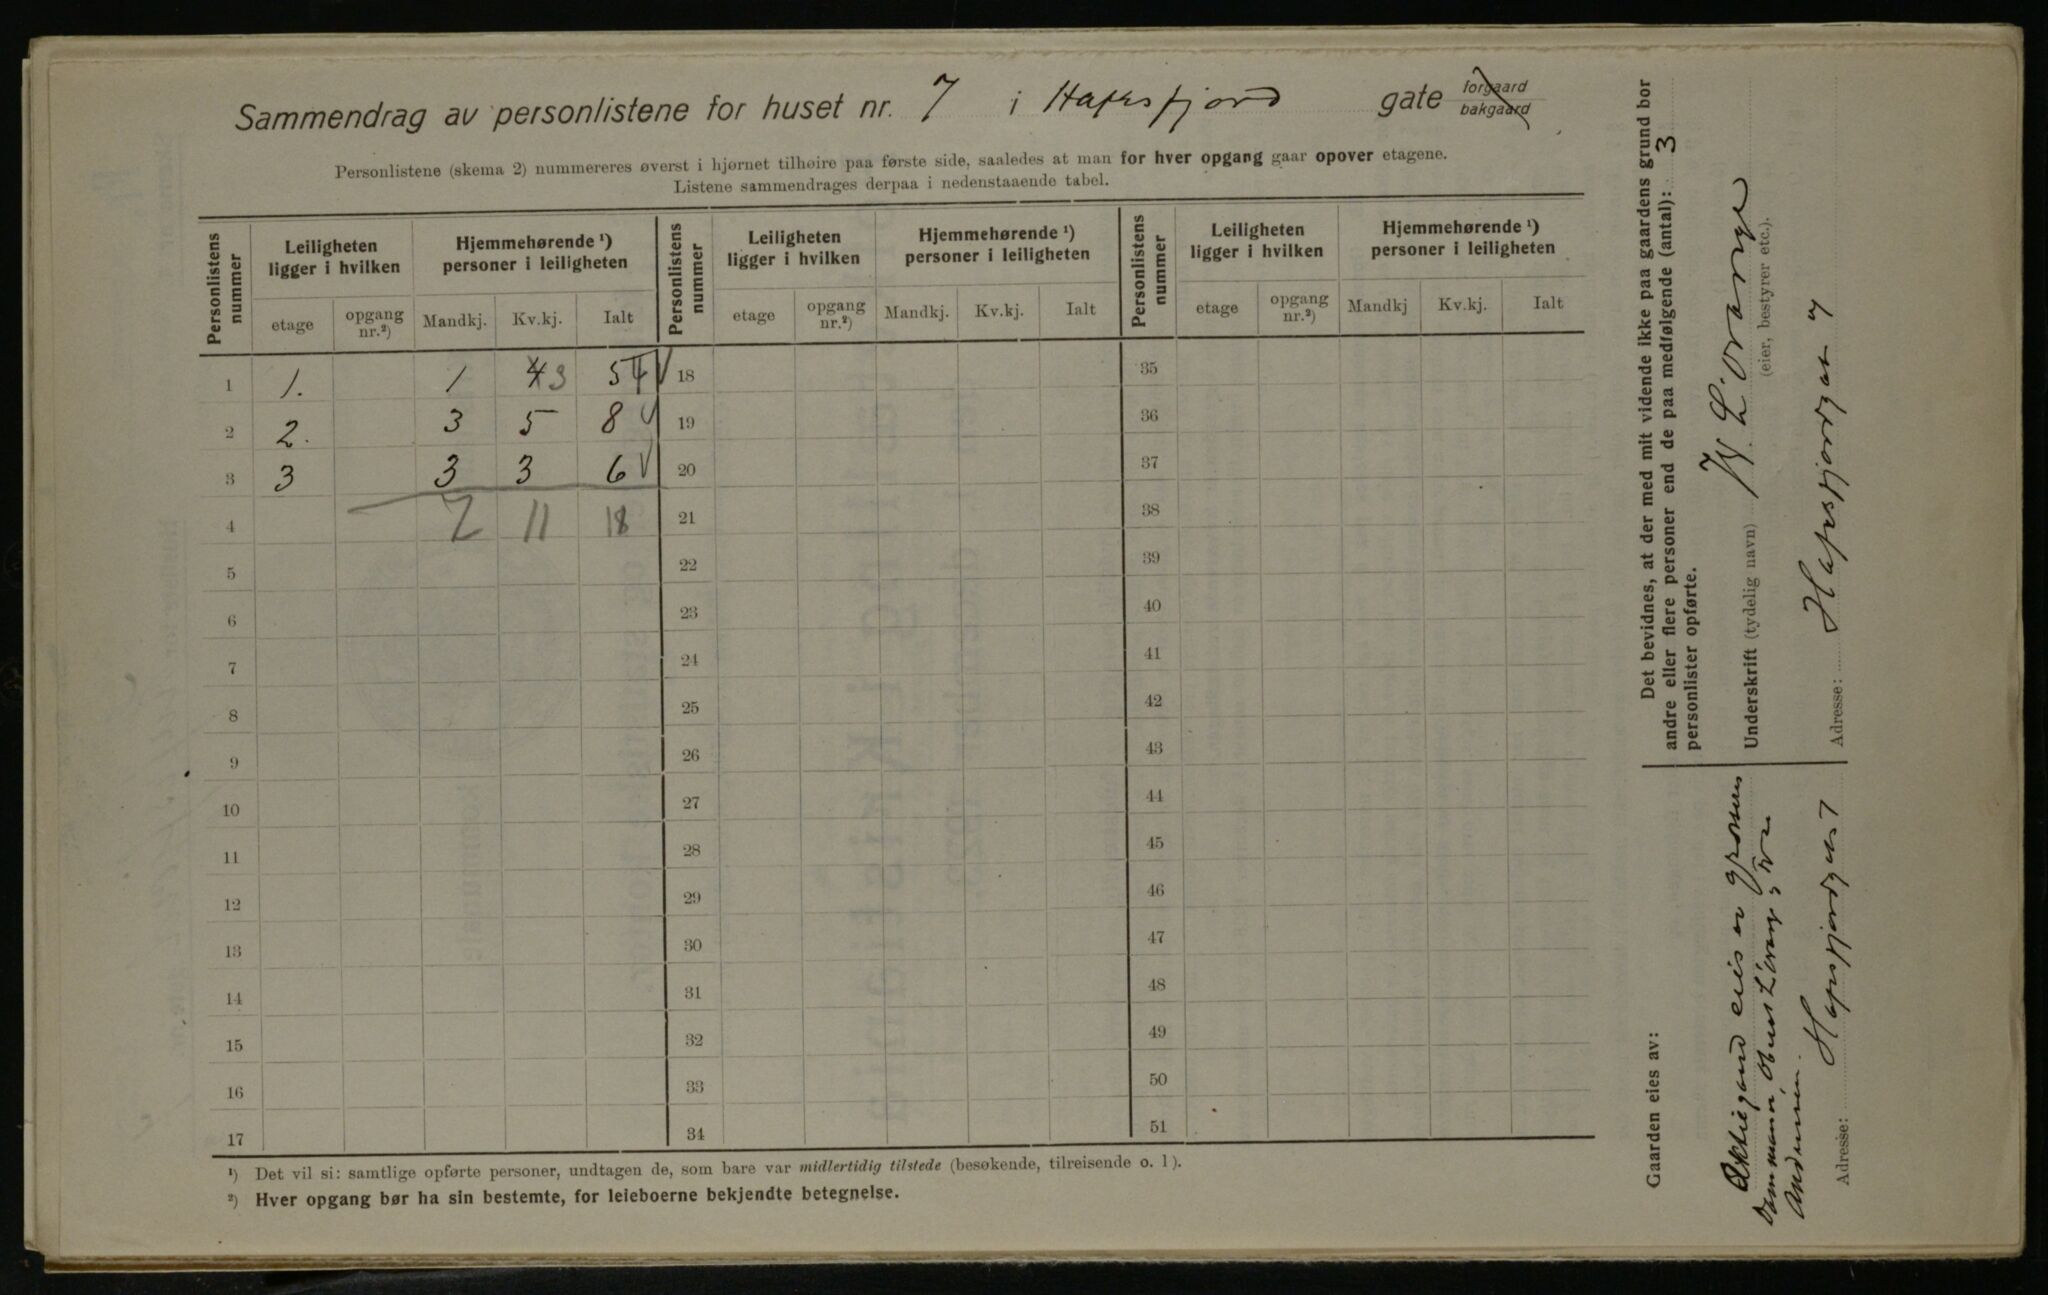 Sammendrag av personlistene for huset nr. 7 i Hafrsfjord gate forgaard bakgaard
Personlistene (skema 2) nummereres øverst i hjørnet tilhøire paa første side, saaledes at man for hver opgang gaar opover etagene.
Listene sammendrages derpaa i nedenstaaende tabel.
Personlistens nummer Leiligheten ligger i hvilken Hjemmehørende ¹) personer i leiligheten Personlistens nummer Leiligheten ligger i hvilken Hjemmehørende ¹) personer i leiligheten Personlistens nummer Leiligheten ligger i hvilken Hjemmehørende ¹) personer i leiligheten
etage opgang nr.²) Mandkj. Kv.kj. Ialt etage opgang nr.²) Mandkj. Kv.kj. Ialt etage opgang nr.²) Mandkj Kv.kj. Ialt
1 1. 1 4 3 5 4 18 35
2 2. 3 5 8 19 36
3 3 3 3 6 20 37
4 7 11 18 21 38
5 22 39
6 23 40
7 24 41
8 25 42
9 26 43
10 27 44
11 28 45
12 29 46
13 30 47
14 31 48
15 32 49
16 33 50
17 34 51
¹) Det vil si: samtlige opførte personer, undtagen de, som bare var midlertidig tilstede (besøkende, tilreisende o. l).
²) Hver opgang bør ha sin bestemte, for leieboerne bekjendte betegnelse.
Det bevidnes, at der med mit vidende ikke paa gaardens grund bor
andre eller flere personer end de paa medfølgende (antal): 3
personlister opførte.
Underskrift (tydelig navn) W L'orange
(eier, bestyrer etc.).
Adresse: Hafrsfjordgaten 7
Gaarden eies av:
Aktiegaard eies av
L'orange
Andersen.
Adresse: Hafrsfjordgt 7